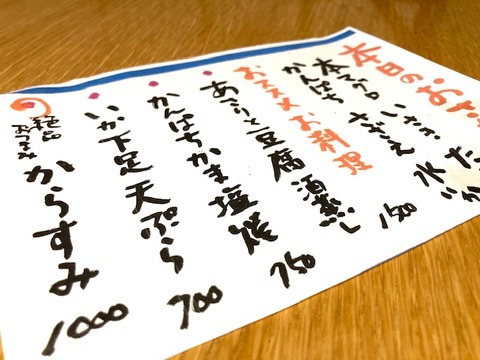 本日のお
本マグロ いさき た
かんぱち さざえ 水 いか
1500
おススメお料理
あさりと豆腐 酒蒸し
750
かんぱちかま塩焼
700
いか下足天ぷら
絶品おつまみ からすみ
1000